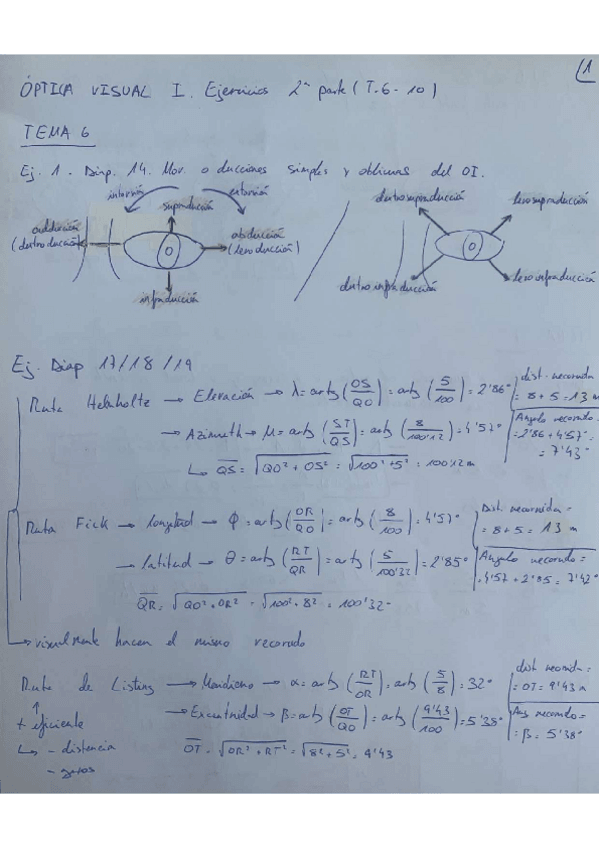 1
ÓPTICA VISUAL I. Ejercicios 2ª parte (T.6-10)
TEMA 6
Ej. 1. Diap. 14. Mov. o ducciones simples y oblicuas del OI.
intorsión extorsión
supraducción
adducción
(dextroducción)
abducción
(levoducción)
infraducción
dextrosupraducción levosupraducción
dextroinfraducción levoinfraducción
Ej. Diap 17/18/19
Ruta Helmholtz → Elevación → λ = arctg (OS/QO) = arctg (5/100) = 2'86°
dist. recorrida
= 8+5 = 13 m
→ Azimuth → μ = arctg (ST/QS) = arctg (8/100'12) = 4'57°
Angulo recorrido =
= 2'86 + 4'57° =
= 7'43°
↳ QS = √QO² + OS² = √100² + 5² = 100'12 m
Ruta Fick → longitud → φ = arctg (OR/QO) = arctg (8/100) = 4'57°
Dist. recorrida =
= 8+5 = 13 m
→ latitud → θ = arctg (RT/QR) = arctg (5/100'32) = 2'85°
Angulo recorrido =
= 4'57 + 2'85 = 7'42°
QR = √QO² + OR² = √100² + 8² = 100'32
→ visualmente hacen el mismo recorrido
Ruta de Listing → Meridiano → α = arctg (RT/OR) = arctg (5/8) = 32°
dist recorrida =
= OT = 9'43 m
+ eficiente
→ Excentricidad → β = arctg (OT/QO) = arctg (9'43/100) = 5'38°
Ang recorrido =
= β = 5'38°
↳ - distancia
OT = √OR² + RT² = √8² + 5² = 9'43
- giros